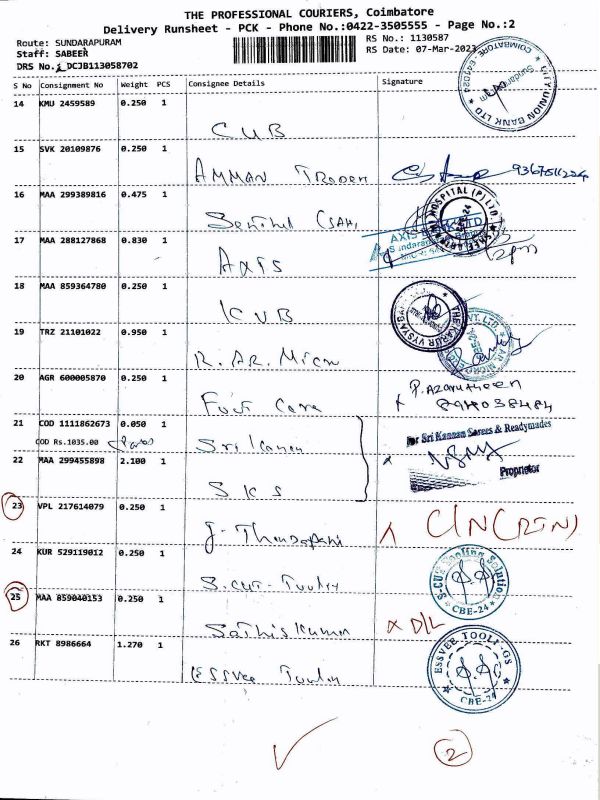 THE PROFESSIONAL COURIERS, Coimbatore
Delivery Runsheet - PCK - Phone No.:0422-3505555 - Page No.:2
Route: SUNDARAPURAM
RS No.: 1130587
Staff: SABEER
RS Date: 07-Mar-2023
DRS No.: DCJB113058702
S No Consignment No Weight PCS Consignee Details Signature
14 KMU 2459589 0.250 1
CUB
CITY UNION BANK LTD
COIMBATORE 641024
Sundarapuram
15 SVK 20109876 0.250 1
AMMAN
16 MAA 299389816 0.475 1
HOSPITAL (P) LTD.
17 MAA 288127868 0.830 1
AXIS
AXIS
18 MAA 859364780 0.250 1
KVB
THE KARUR VYSYA BA
19 TRZ 21101022 0.950 1
R. AR. Micro
20 AGR 600005870 0.250 1
P. Azarutheen
21 COD 1111862673 0.050 1
COD Rs.1035.00
Sri Kannan
for Sri Kannan Sarees & Readymades
Proprietor
22 MAA 299455898 2.100 1
S K S
23 VPL 217614079 0.250 1
C/N (RTN)
24 KUR 529119012 0.250 1
S.CUT
S.CUT Tooling Solution
CBE-24
25 MAA 859040153 0.250 1
Sathis Kumar
x D/L
26 RKT 8986664 1.270 1
ESSVEE
ESSVEE TOOLINGS
CBE-24
2